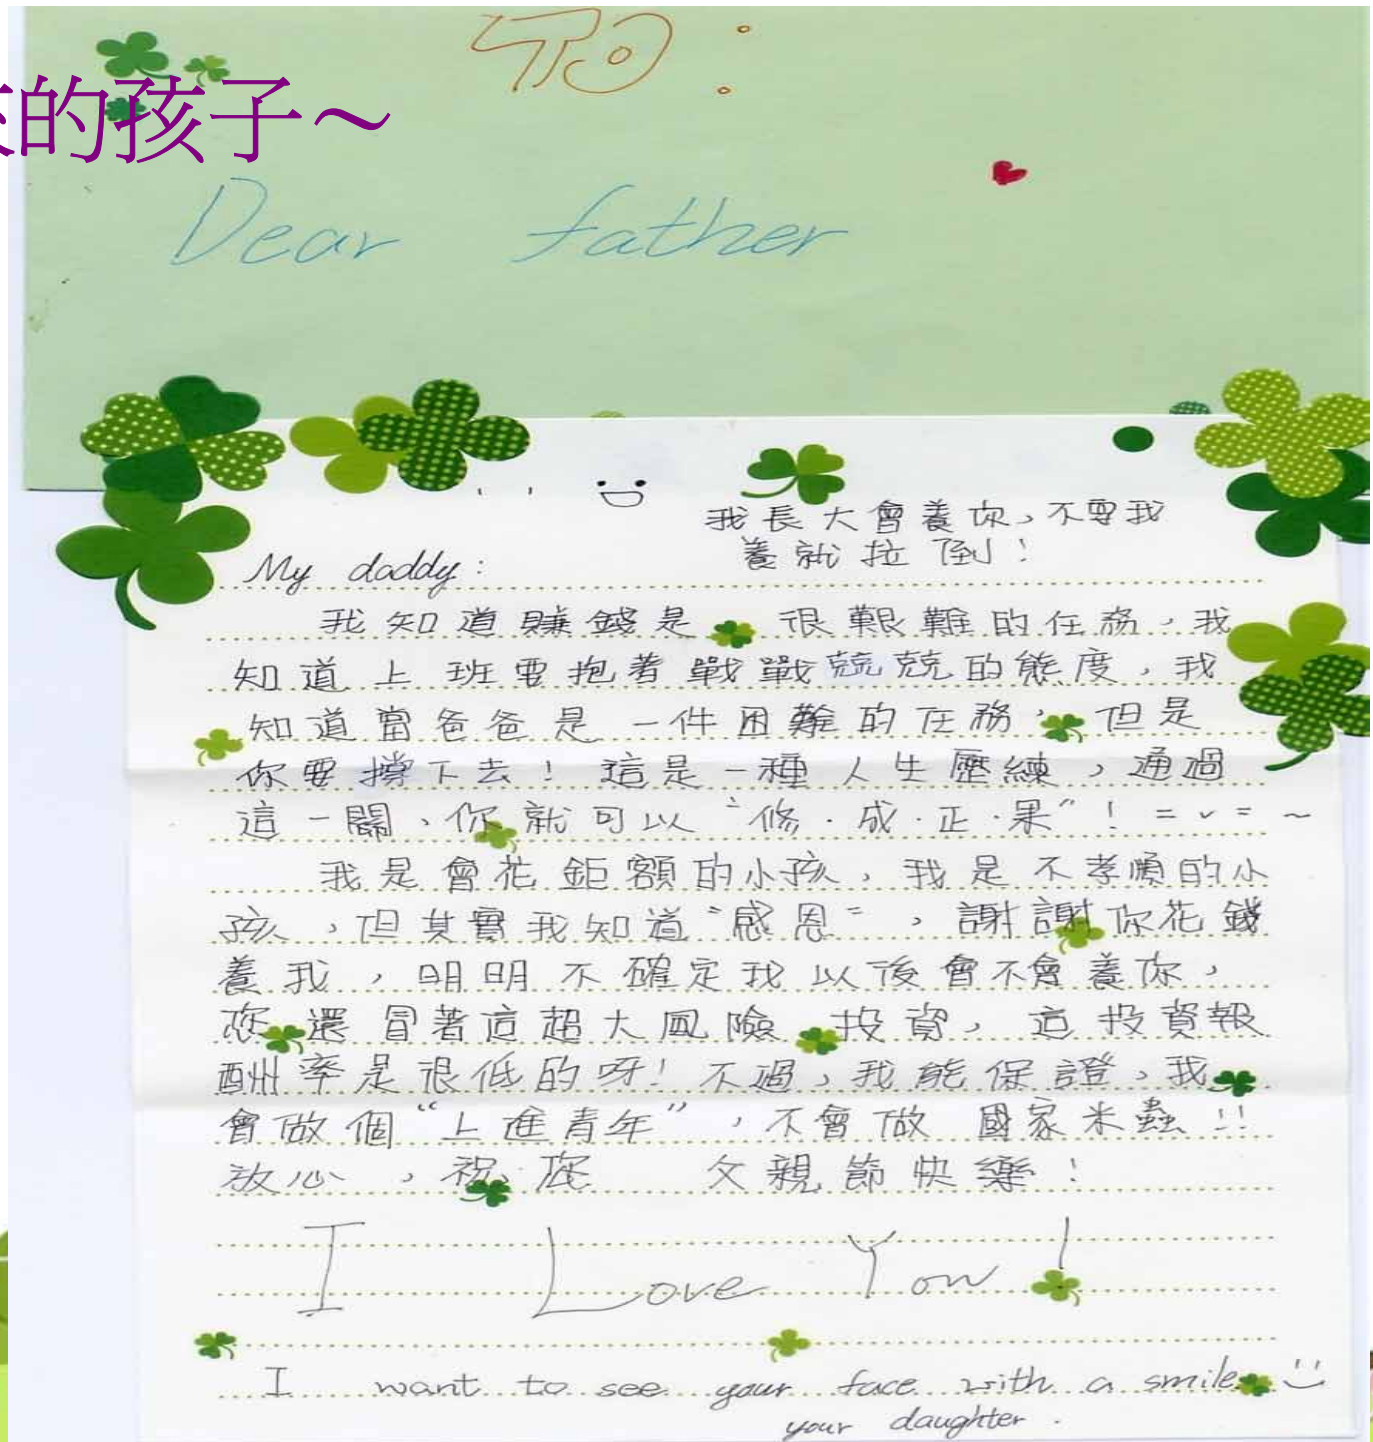 的孩子～
Dear father
我長大會養你，不要我
養就拉倒！
My daddy:
我知道賺錢是很艱難的任務，我
知道上班要抱著戰戰兢兢的態度，我
知道當爸爸是一件困難的任務，但是
你要撐下去！這是一種人生歷練，通過
這一關，你就可以“修．成．正．果”！=v=～
我是會花鉅額的小孩，我是不孝順的小
孩，但其實我知道“感恩”，謝謝你花錢
養我，明明不確定我以後會不會養你，
您還冒著這超大風險投資，這投資報
酬率是很低的呀！不過，我能保證，我
會做個“上進青年”，不會做國家米蟲!!
放心，祝您 父親節快樂！
I Love You!
I want to see your face with a smile
your daughter.